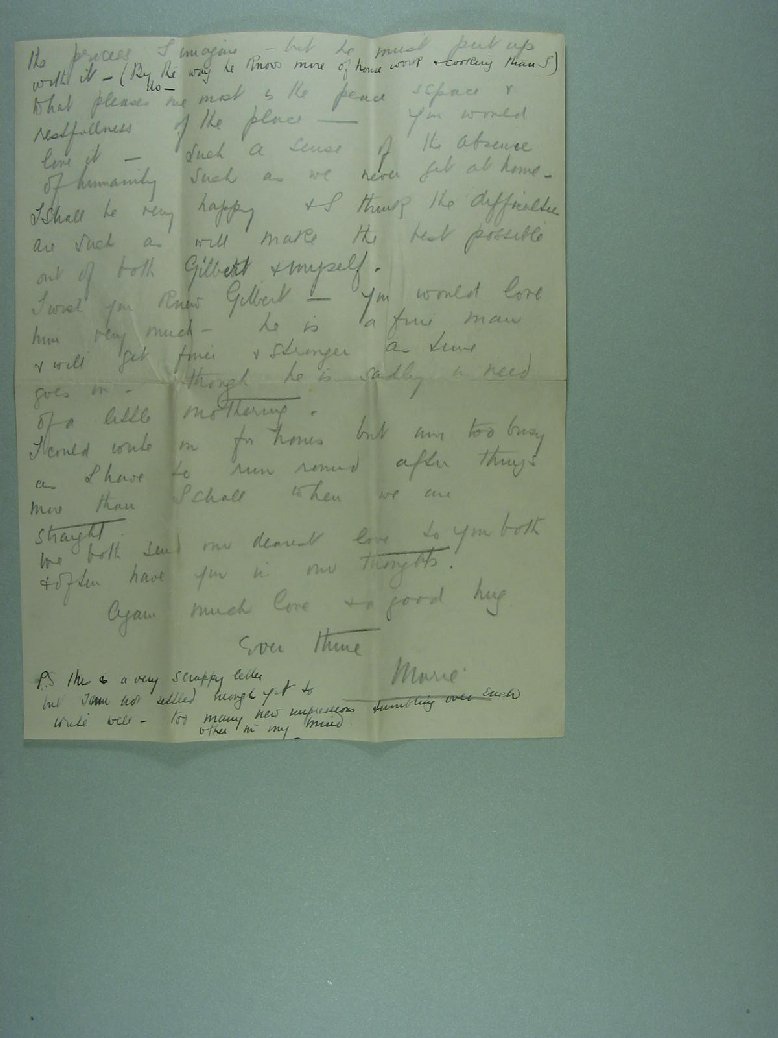 the process I imagine - but he must put up
with it - (By the way he knows more of house work & cooking than I)
do -
What pleases me most is the peace space &
restfullness of the place — you would
love it — Such a sense of the absence
of humanity such as we never get at home -
I shall be very happy & I think the difficulties
are such as will make the best possible
out of both Gilbert & myself.
I wish you knew Gilbert — you would love
him very much - he is a fine man
& will get finer & stronger as time
goes on - though he is sadly in need
of a little mothering.
I could write on for hours but am too busy
as I have to run round after things
more than I shall when we are
straight
We both send our dearest love to you both
& often have you in our thoughts.
Again much love & a good hug
Ever thine
Marie
P.S this is a very scrappy letter
but I am not settled enough yet to
write well - too many new impressions tumbling over each
other in my mind